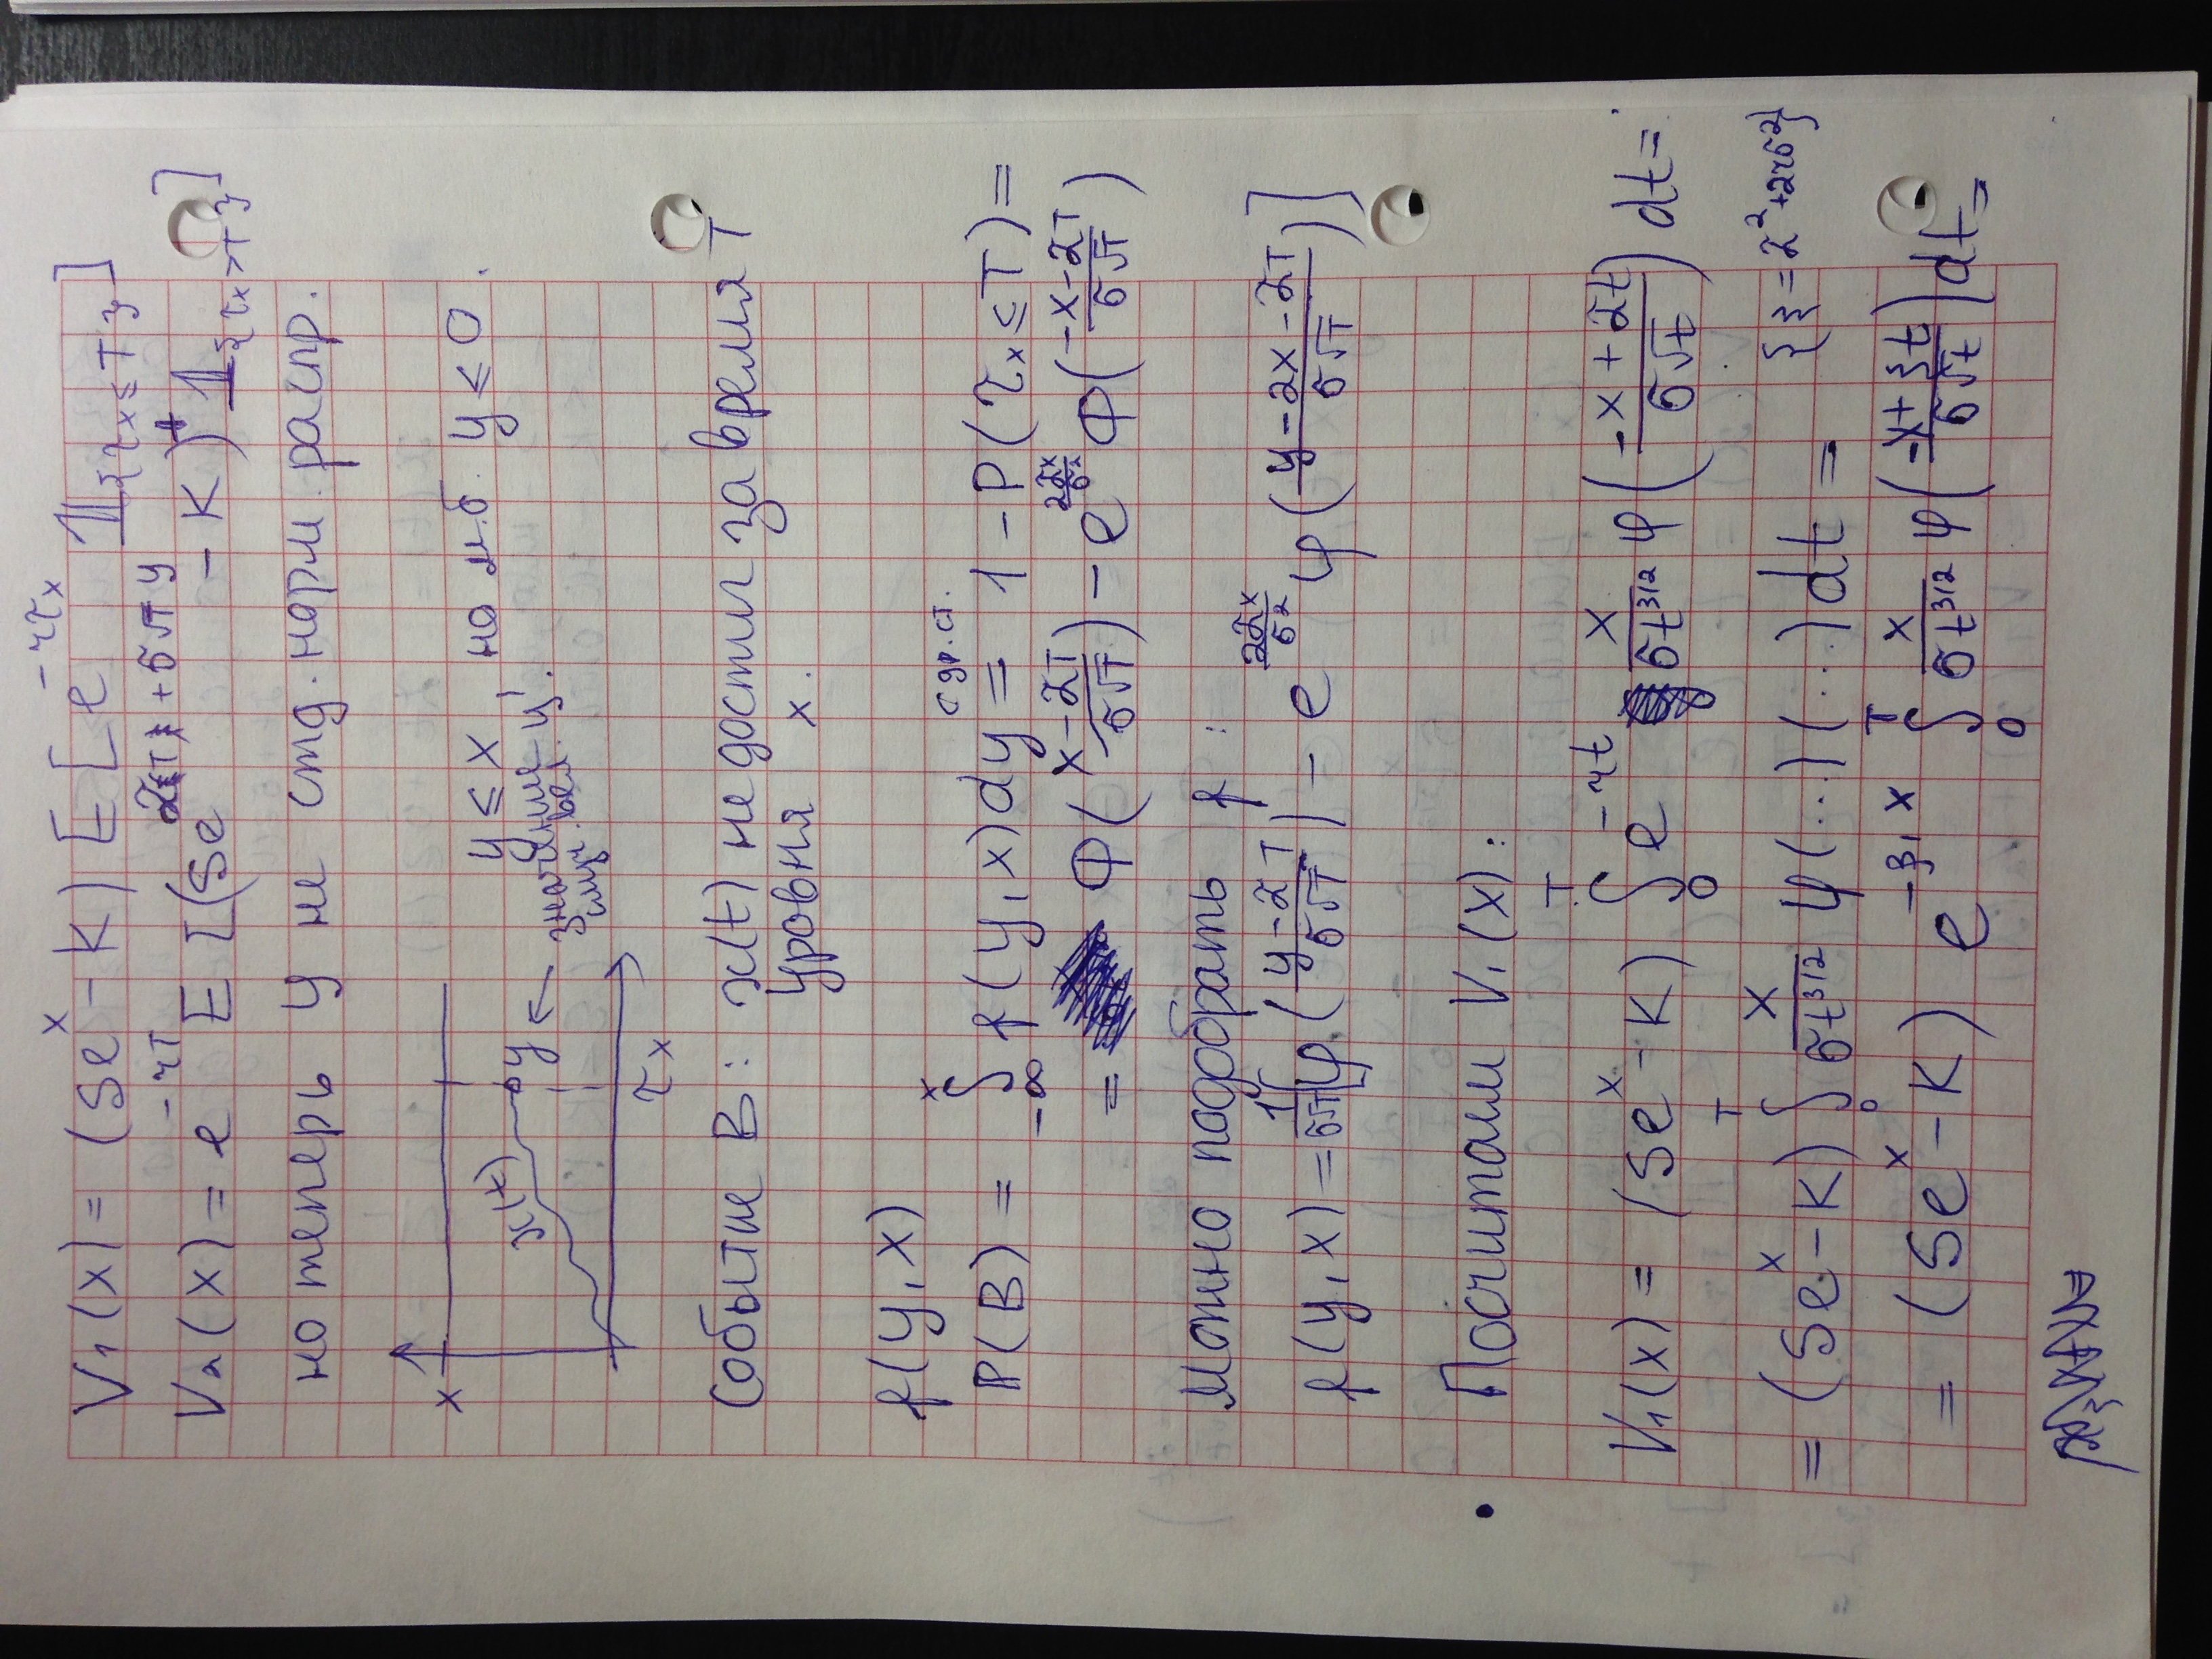 V₁(x) = (Se^x − K) E[e^{−rτ_x} 𝟙_{{τ_x ≤ T}}]
V₂(x) = e^{−rT} E[(Se^{r̃T + σ√T y} − K)⁺ 𝟙_{{τ_x > T}}]
но теперь y не стд. норм. распр.
x
x(t)
y ← значение
случ. вел. y'.
y ≤ x но м.б. y < 0.
τ_x
Событие B: x(t) не достиг за время T
уровня x.
f(y, x)
с др. ст.
P(B) = ∫_{−∞}^{x} f(y, x)dy = 1 − P(τ_x ≤ T) =
= Φ((x − r̃T)/(σ√T)) − e^{2r̃x/σ²} Φ((−x − r̃T)/(σ√T))
Можно подобрать f:
f(y, x) = 1/(σ√T) [φ((y − r̃T)/(σ√T)) − e^{2r̃x/σ²} φ((y − 2x − r̃T)/(σ√T))]
Посчитаем V₁(x):
V₁(x) = (Se^x − K) ∫_0^T e^{−rt} x/(σt^{3/2}) φ((−x + r̃t)/(σ√t)) dt =
= (Se^x − K) ∫_0^T x/(σt^{3/2}) φ(...)(...)dt = {ξ² = r̃² + 2rσ²}
= (Se^x − K) e^{−ξ₁x} ∫_0^T x/(σt^{3/2}) φ((−x + ξt)/(σ√t))dt =